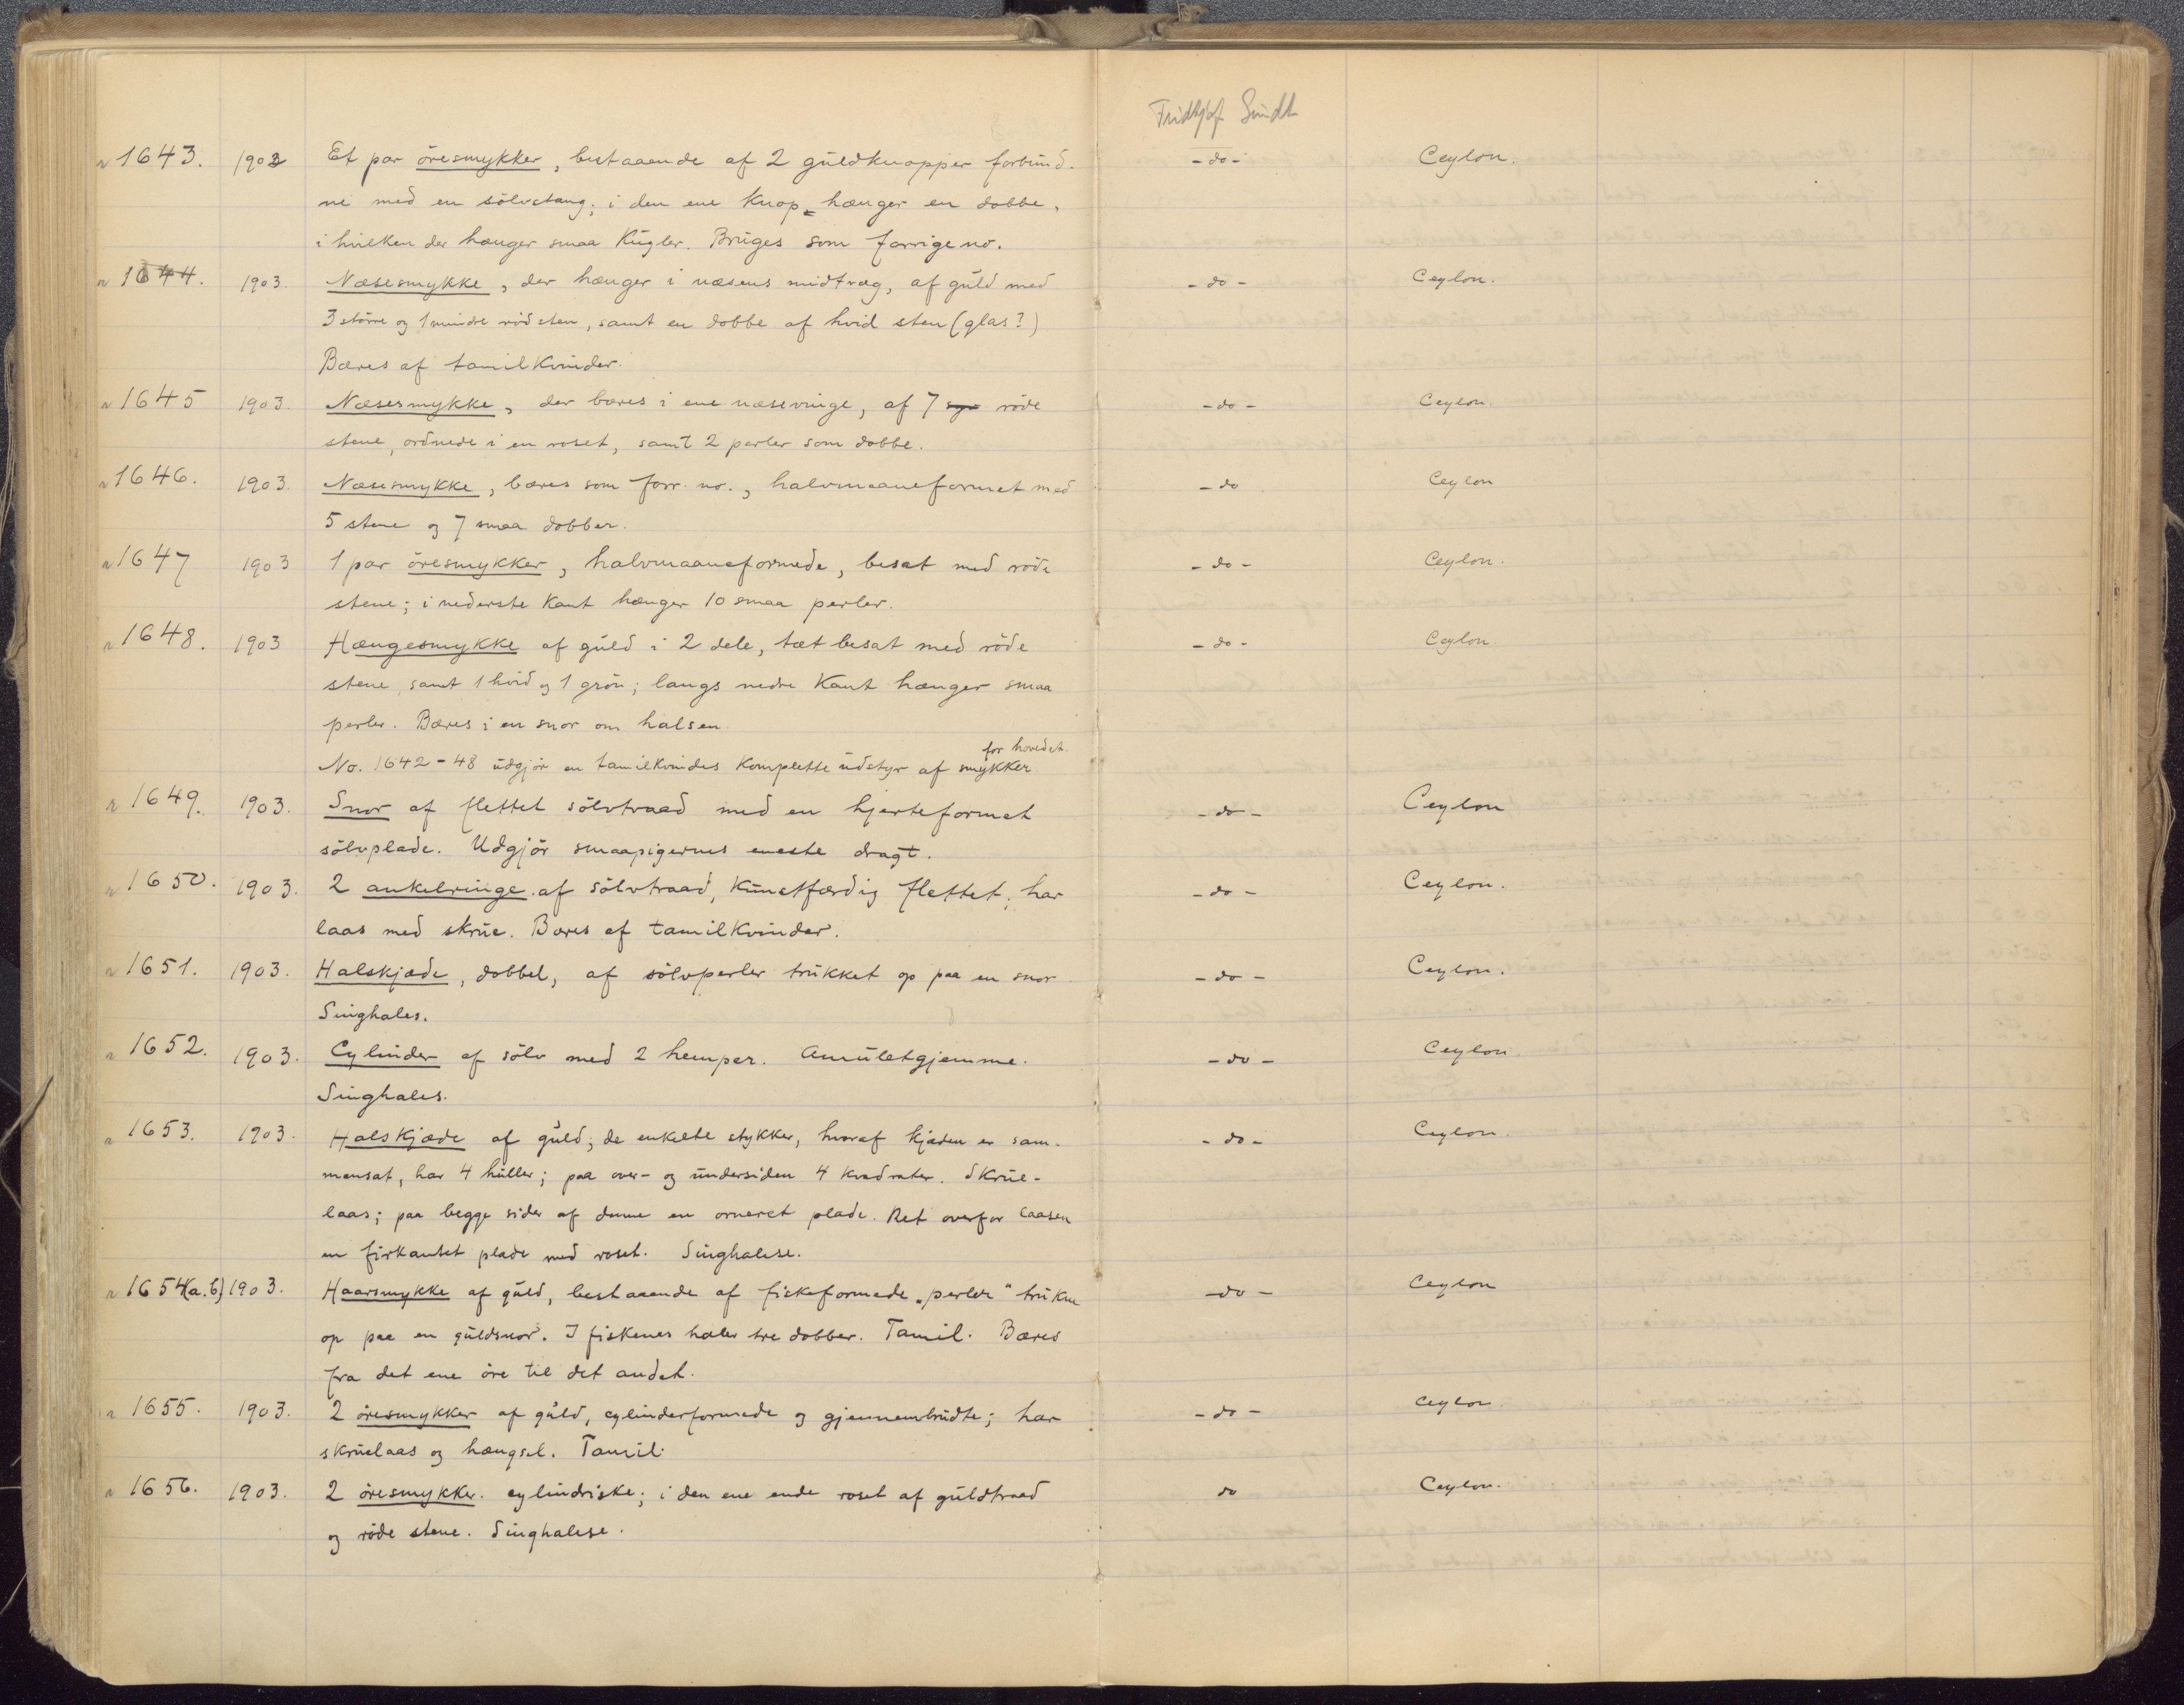 Fridtjof Sundt
1643. 1903 Et par öresmykker, bestaaende af 2 guldknopper forbund- -do- Ceylon.
ne med en sölvstang; i den ene Knop hænger en dobbe,
i hvilken der hænger smaa Kugler. Bruges som forrige no.
1644. 1903. Næsesmykke, der hænger i næsens midtvæg, af guld med -do- Ceylon.
3 större og 1 mindre röd sten, samt en dobbe af hvid sten (glas?)
Bæres af tamilkvinder.
1645 1903. Næsesmykke, der bæres i ene næsevinge, af 7 röde -do- Ceylon.
stene, ordnede i en roset, samt 2 perler som dobbe.
1646. 1903. Næsesmykke, bæres som forr. no., halvmaaneformet med -do Ceylon
5 stene og 7 smaa dobber.
1647 1903 1 par öresmykker, halvmaaneformede, besat med röde -do- Ceylon.
stene; i nederste Kant hænger 10 smaa perler.
1648. 1903 Hængesmykke af guld i 2 dele, tæt besat med röde -do- Ceylon.
stene, samt 1 hvid og 1 grön; langs nedre Kant hænger smaa
perler. Bæres i en snor om halsen.
for hovedet.
No. 1642-48 udgjör en tamilkvindes Komplette udstyr af smykker
1649. 1903. Snor af flettet sölvtraad med en hjerteformet -do- Ceylon
sölvplade. Udgjör smaapigernes eneste dragt.
1650. 1903. 2 ankelringe af sölvtraad, Kunstfærdig flettet; har -do- Ceylon.
laas med skrue. Bæres af tamilkvinder.
1651. 1903. Halskjæde, dobbel, af sölvperler trukket op paa en snor -do- Ceylon.
Singhales.
1652. 1903. Cylinder af sölv med 2 hemper. Amuletgjemme. -do- Ceylon.
Singhales.
1653. 1903. Halskjæde af guld; de enkelte stykker, hvoraf kjæden er sam- -do- Ceylon.
mensat, har 4 huller; paa over- og undersiden 4 kvadrater. Skrue-
laas; paa begge sider af denne en orneret plade. Ret overfor laasen
en firkantet plade med roset. Singhalese.
1654(a.b) 1903. Haarsmykke af guld, bestaaende af fiskeformede „perler" trukne -do- Ceylon
op paa en guldsnor. I fiskenes haler tre dobber. Tamil. Bæres
fra det ene öre til det andet.
1655. 1903. 2 öresmykker af guld, cylinderformede og gjennembrudte; har -do- Ceylon.
skruelaas og hængsel. Tamil.
1656. 1903. 2 öresmykker. cylindriske; i den ene ende roset af guldtraad do Ceylon.
og röde stene. Singhalese.